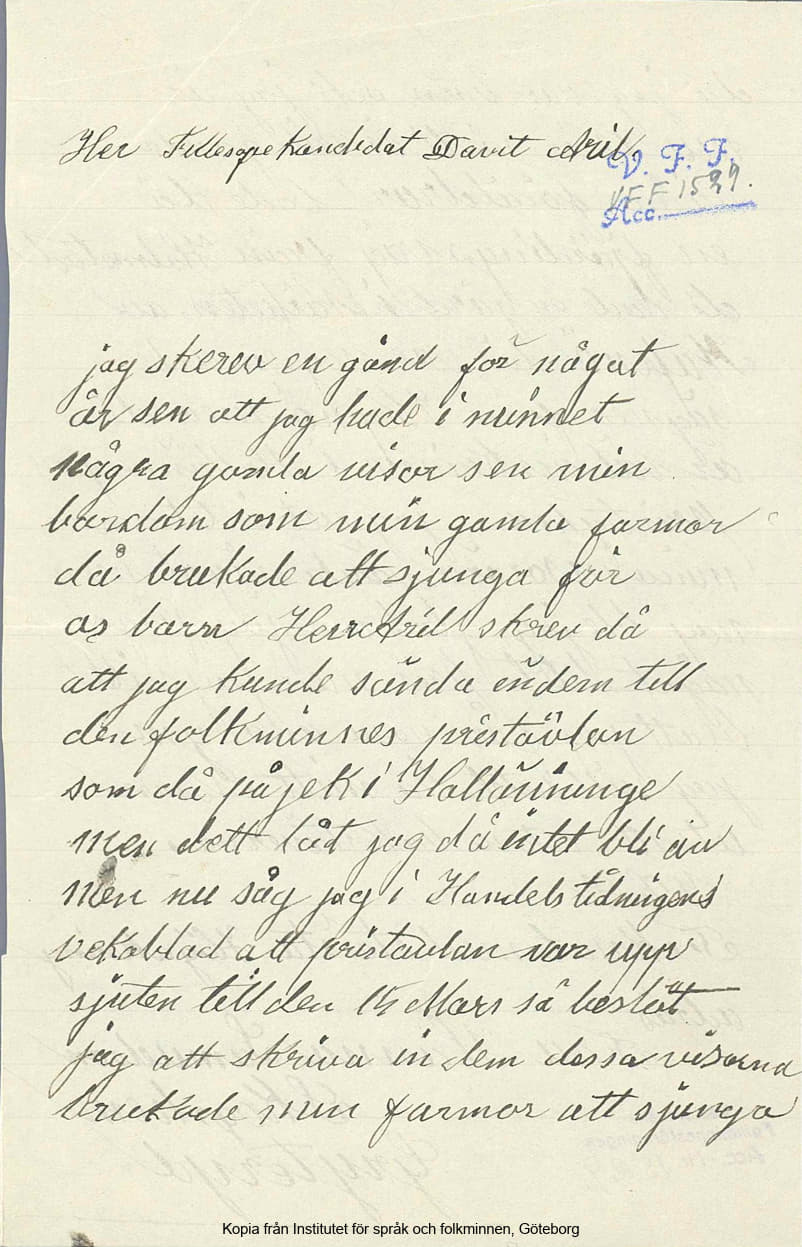 Her Fillesofie Kandidat Davit Arill
V. F. F.
VFF 1539.
Acc.
jag skrev en gånd för något
år sen att jag hade i minnet
några gamla visor sen min
barndom som min gamla farmor
då brukade att sjunga för
os barn Herr Arill skrev då
att jag kunde sända in dem till
den folkminnes pristävlan
som då påjek i Halländninge
men dett låt jag då intet bli av
men nu såg jag i Handelstidningens
vekoblad att pristävlan var upp
sjuten till den 15 Mars så beslöt
jag att skriva in dem dessa visorna
brukade min farmor att sjunga
Kopia från Institutet för språk och folkminnen, Göteborg